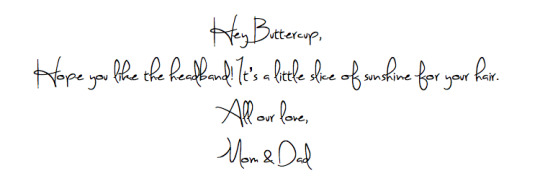 Hey Buttercup,
Hope you like the headband! It's a little slice of sunshine for your hair.
All our love,
Mom & Dad